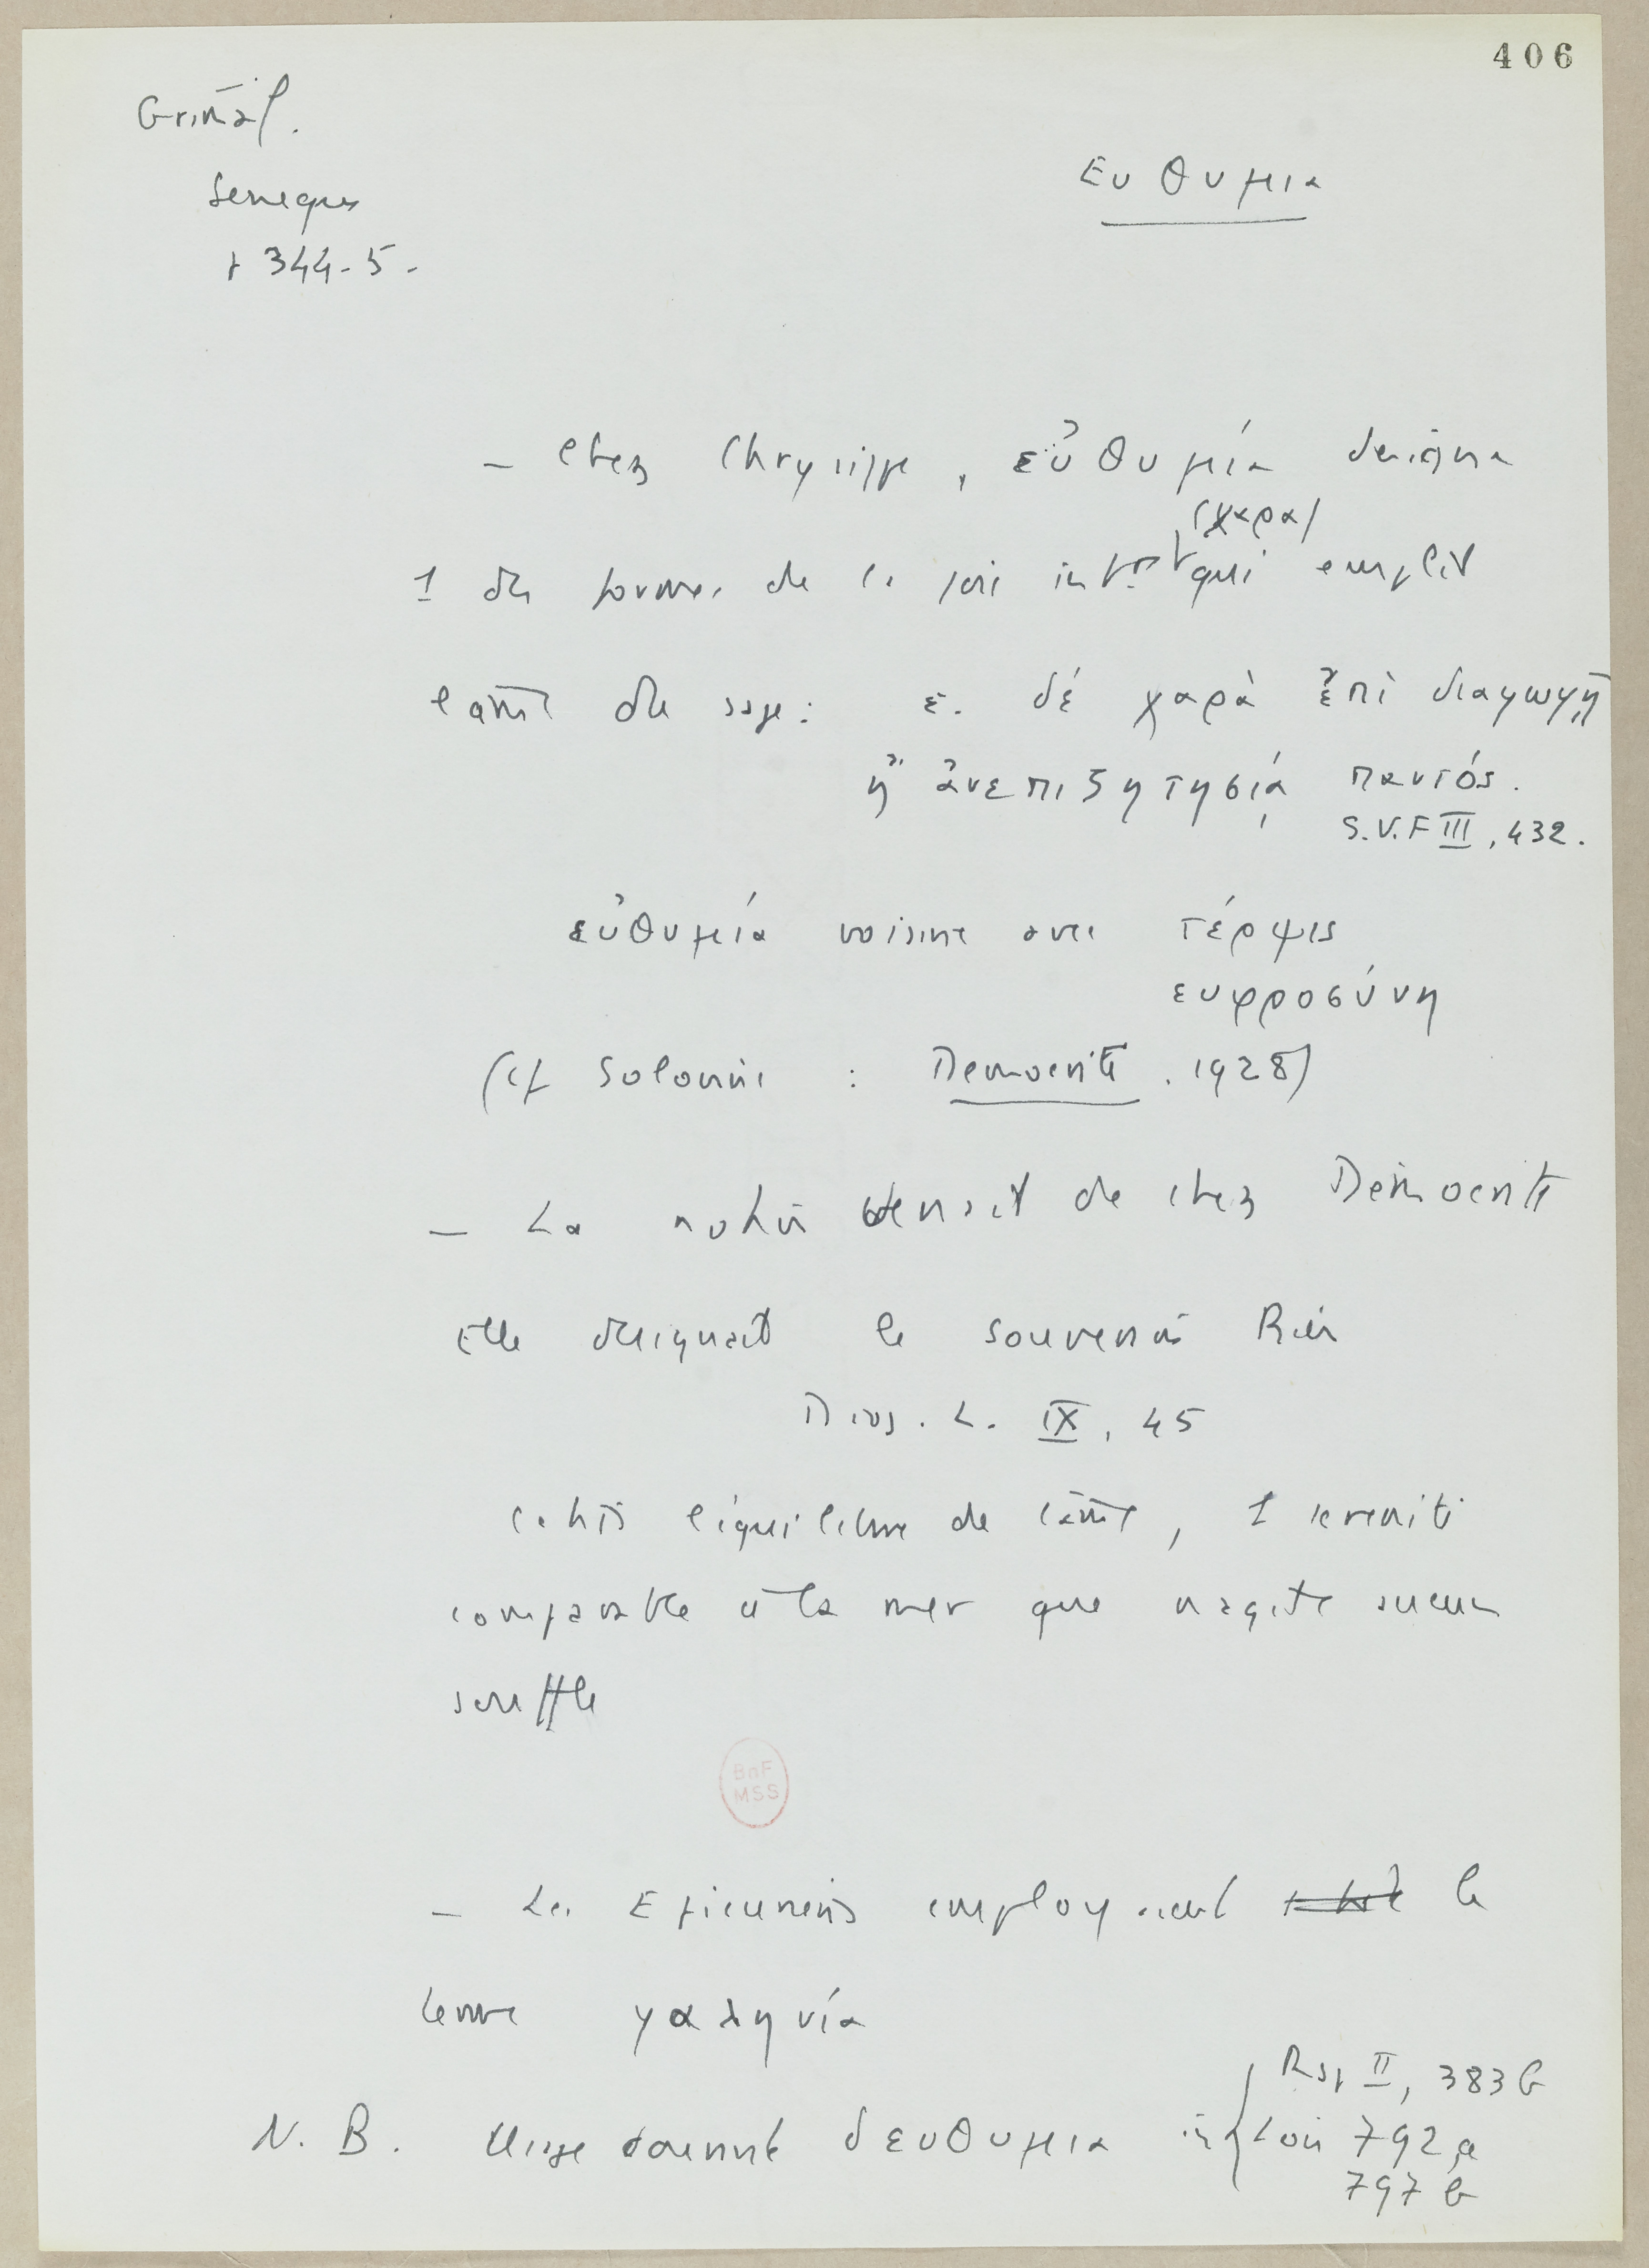 406
Grimal.
Seneque
p 344-5.
Ευθυμια
– chez Chrysippe, εὐθυμία designe
(χαρα)
1 des formes de la joie intre qui emplit
l'ame du sage : ε. δέ χαρὰ ἐπὶ διαγωγῇ
ἢ ἀνεπιζητησίᾳ παντός.
S.V.F III, 432.
εὐθυμία voisine avec τέρψις
ευφροσύνη
(cf Solovine : Democrite . 1928)
– La notion venait de chez Democrite
Elle designait le souverain Bien
Diog. L. IX, 45
l'équilibre de l'ame, 1 serenité
comparable à la mer que n'agite aucun
souffle
BnF
MSS
– Les Epicuriens employaient le
terme γαληνία
N. B. Usage courant d ευθυμια in { Rep II, 383 b
Lois 792 e
797 b